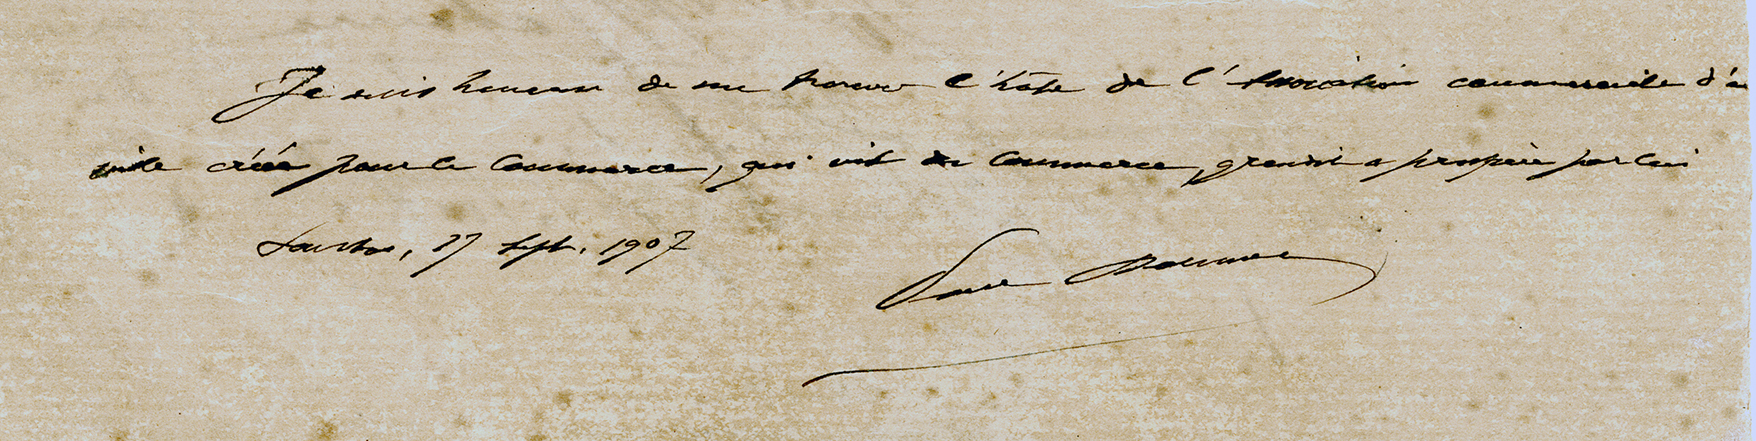 Je suis heureux de me trouver l'hôte de l'Association commerciale d'u
ville créée pour le commerce, qui vit du commerce, grandit & prospère par lui
Santos, 17 Sept. 1907
Paul Doumer